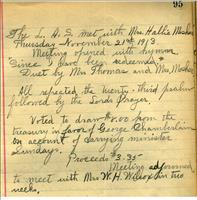 95
The L. A. S. met with Mrs Hallis
Thursday November 21st 1913
Meeting opened with hymn
"Since I have been redeemed"
Duet by Mrs Thomas and Mrs
All repeated the twenty-third psalm
followed by the Lords Prayer.
Voted to draw from the
treasury in favor of George Chamberlain
on account of carrying minister
Sundays.
Proceeds $3.35
Meeting adjourned
to meet with Mrs W. H. Wilcox in two
weeks.